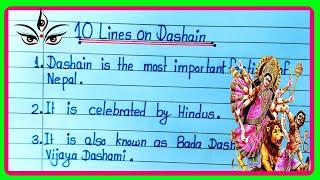 10 Lines on Dashain
1. Dashain is the most important of
Nepal.
2. It is celebrated by Hindus.
3. It is also known as Bada
Vijaya Dashami.